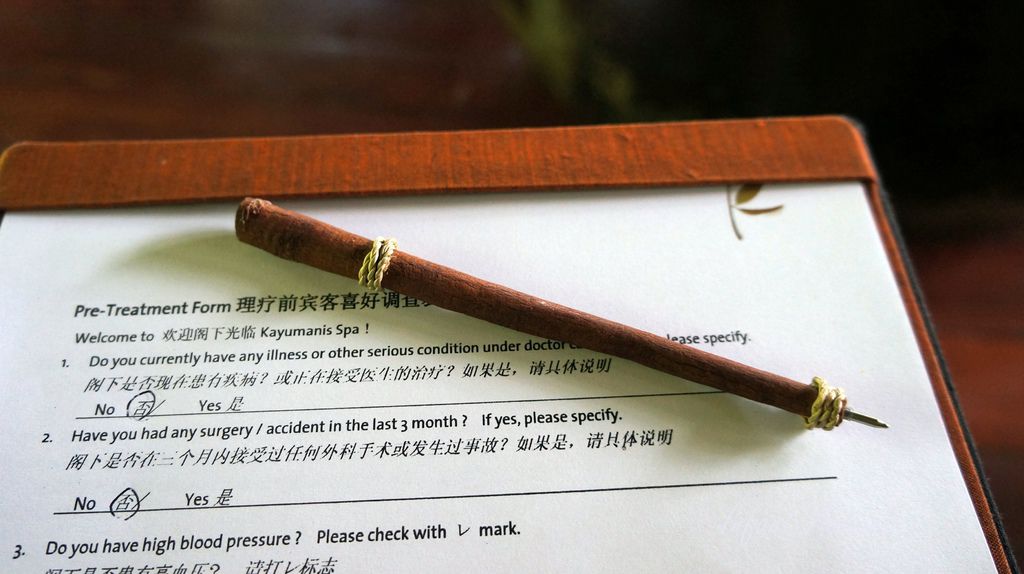 Pre-Treatment Form 理疗前宾客喜好调查
Welcome to 欢迎阁下光临 Kayumanis Spa !
1. Do you currently have any illness or other serious condition under doctor please specify.
阁下是否现在患有疾病？或正在接受医生的治疗？如果是，请具体说明
No 否 Yes 是
2. Have you had any surgery / accident in the last 3 month ? If yes, please specify.
阁下是否在三个月内接受过任何外科手术或发生过事故？如果是，请具体说明
No 否 Yes 是
3. Do you have high blood pressure ? Please check with ✓ mark.
阁下是否患有高血压？ 请打✓标志